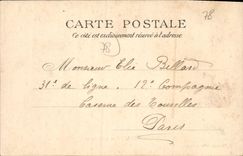 78
CARTE POSTALE
Ce côté est exclusivement réservé à l'adresse
78
Monsieur Elie Billard
31e de ligne . 12e Compagnie
Caserne des Tourelles
Paris